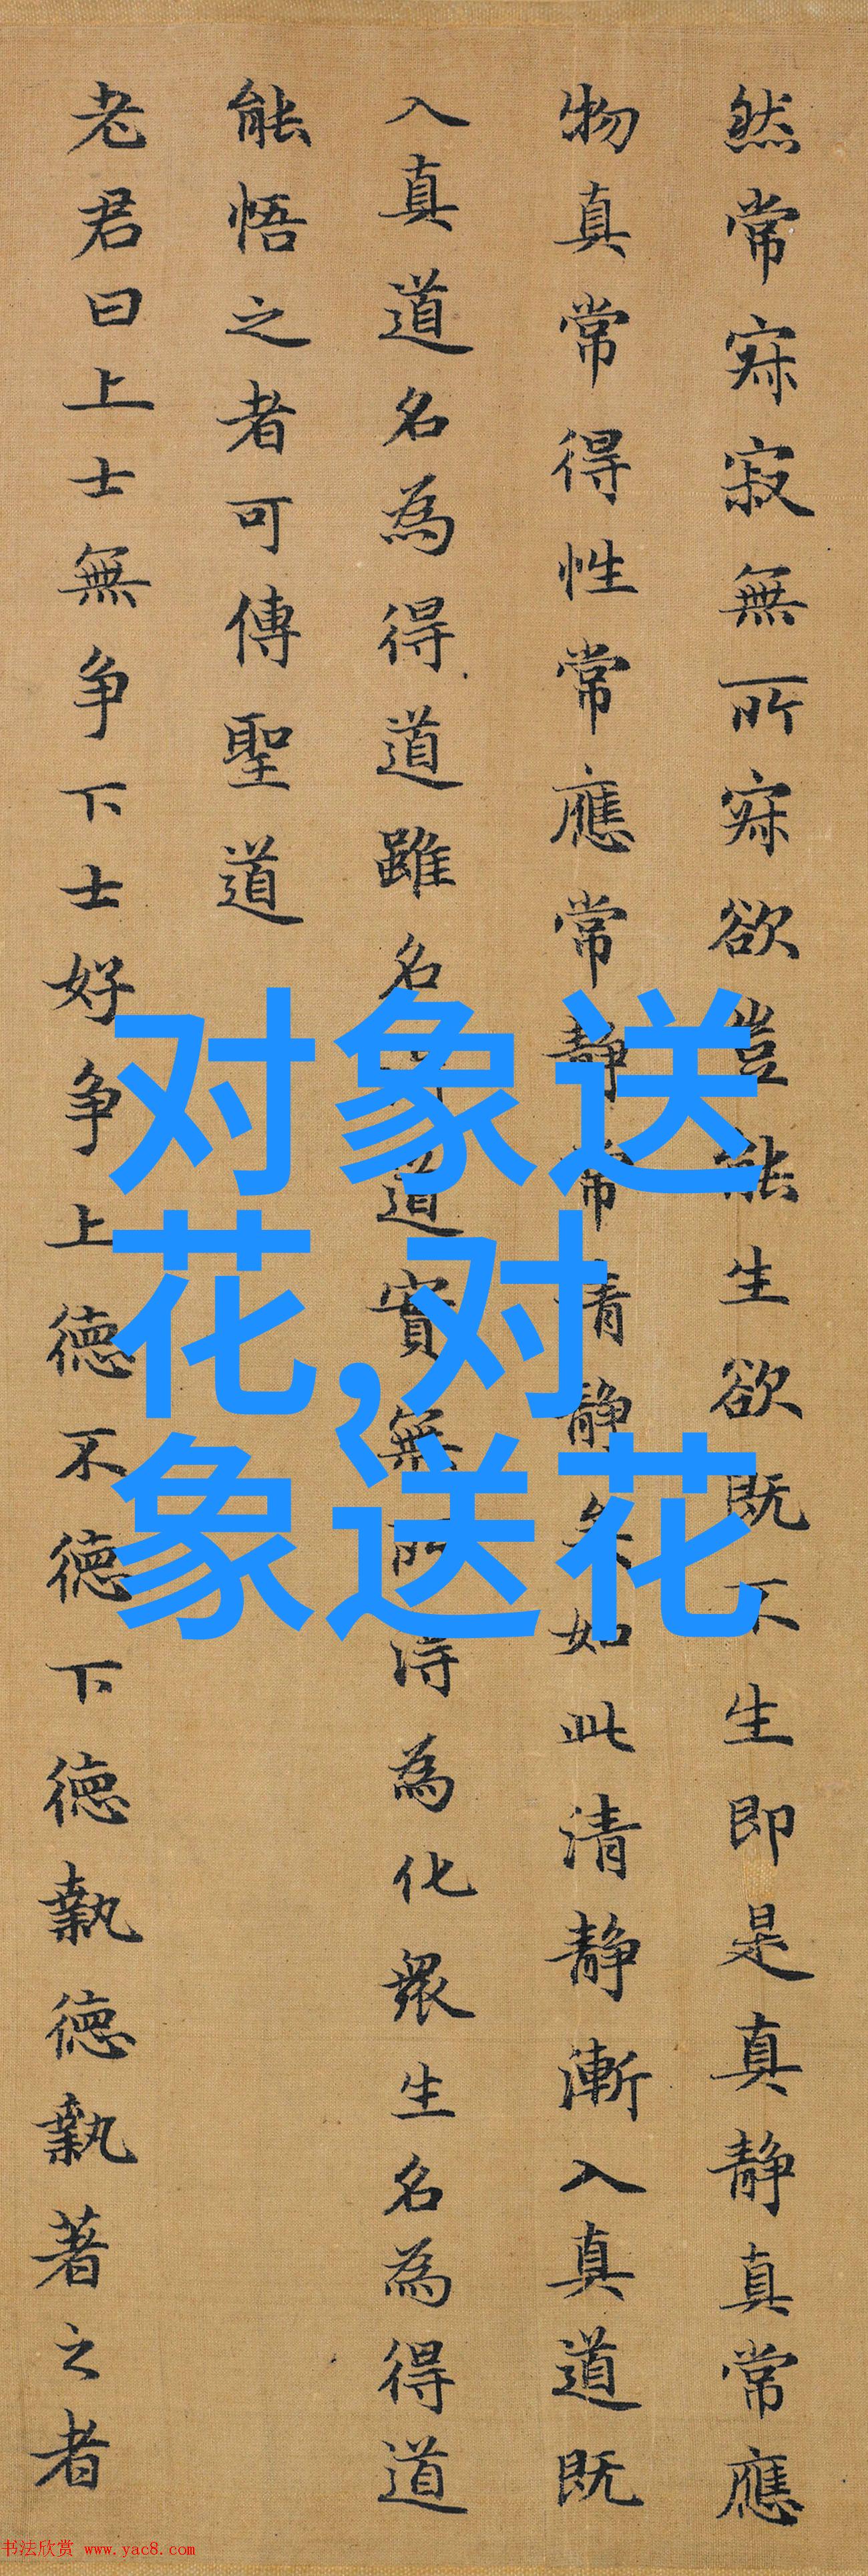 然常寂寂無所寂欲豈能生欲既不生即是真靜真常應
物真常得性常應常靜常清靜矣如此清靜漸入真道既
入真道名為得道雖名得道實無所得為化眾生名為得道
能悟之者可傳聖道
老君曰上士無争下士好争上德不德下德執德執著之者
对象送
花,对
象送花
书法欣赏 www.yac8.com